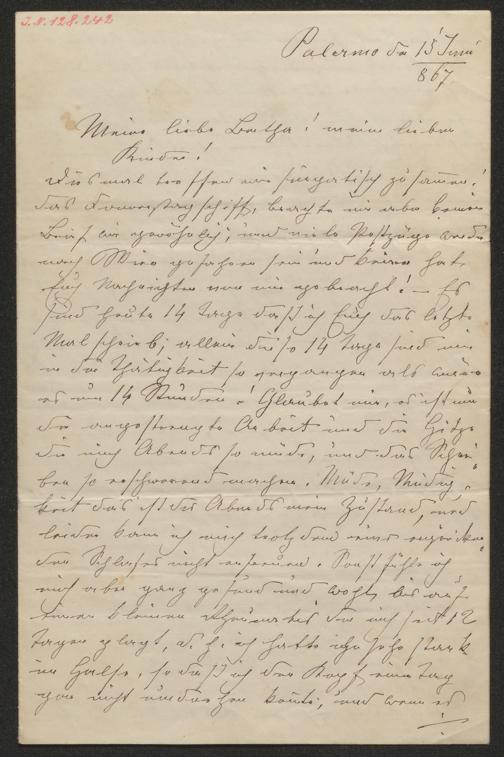 J.N. 128.242
Palermo den 15 Juni
867
Meine liebe Bertha! meine lieben
Kinder!
Diesmal treffen wir sympatisch zusammen!
das Donnerstagschiff, brachte mir aber keinen
Brief wie gewöhnlich, und viele Postzüge werden
nach Wien gefahren sein und keiner hat
Euch Nachrichten von mir gebracht! — Es
sind heute 14 Tage daß ich Euch das letzte
Mal schrieb; allein diese 14 Tage sind mir
in der Thätigkeit so vergangen als wären
es nur 14 Stunden! Glaubet mir, es ist nur
die angestrengte Arbeit und die Hitze
die mich Abends so müde, und das Schrei
ben so erschwerend machen. Müde, Müdig
keit das ist des Abends mein Zustand, und
leider kann ich mich trotzdem eines erquicken
den Schlafes nicht erfreuen. Sonst fühle ich
mich aber ganz gesund und wohl, bis auf
einen kleinen Rheumatis der mich seit 12
Tagen plagt, d. h. ich hatte ihn sehr stark
im Halse, so daß ich den Kopf einen Tag
gar nicht umdrehen konnte, und wenn es